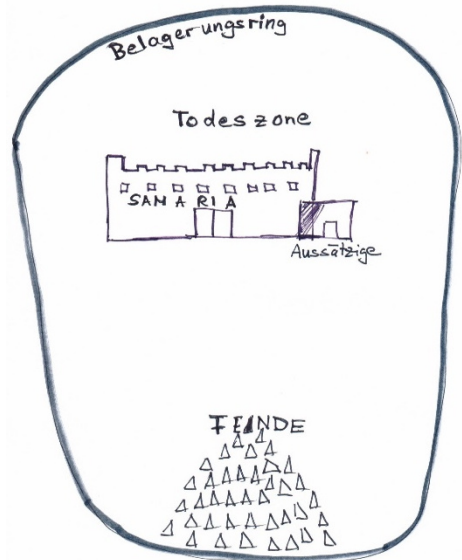 Belagerungsring
Todeszone
SAMARIA
Aussätzige
FEINDE